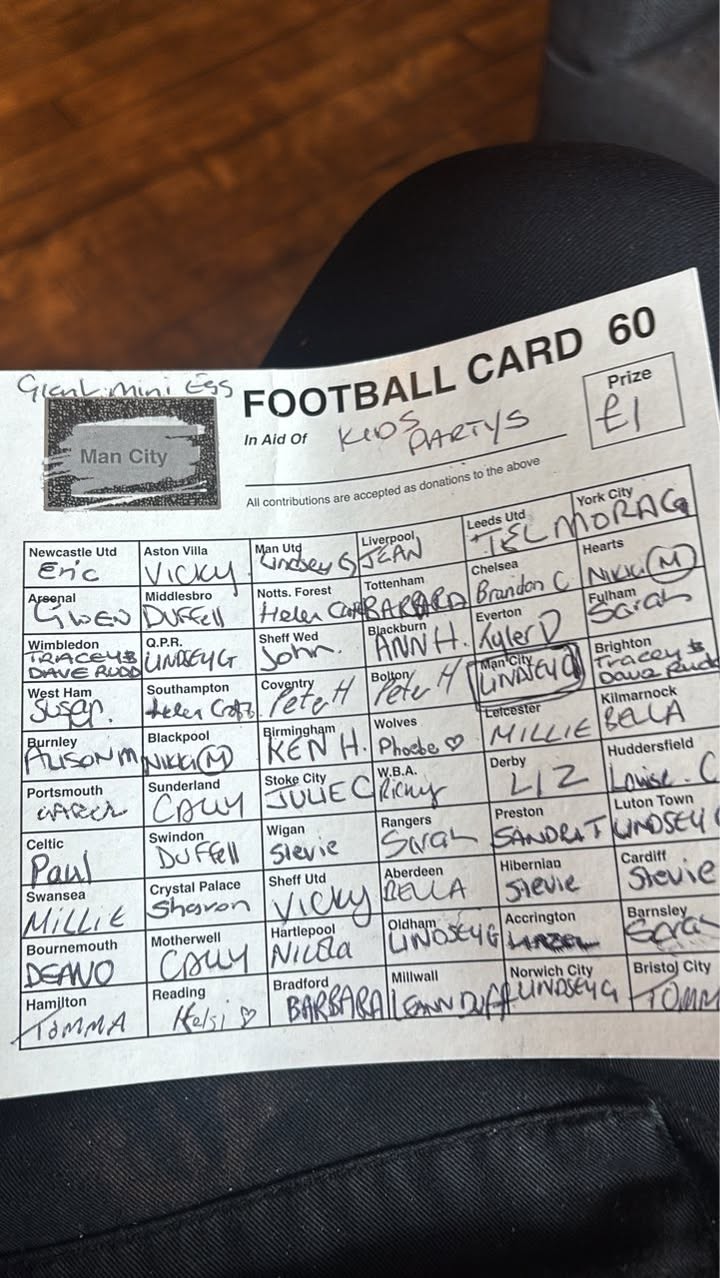 Giant Mini Egs
FOOTBALL CARD 60
Man City
In Aid Of KIDS PARTYS
Prize
£1
All contributions are accepted as donations to the above
Newcastle Utd Aston Villa Man Utd Liverpool Leeds Utd York City
Eric VICKY Lindsey G JEAN TEL MORAG
Arsenal Middlesbro Notts. Forest Tottenham Chelsea Hearts
GWEN DUFFell Helen BARBARA Brandon C NIKKI (M)
Wimbledon Q.P.R. Sheff Wed Blackburn Everton Fylham
TRACEY & DAVE RUDD LINDSEY G John. ANN H. Kyler D Sarah
West Ham Southampton Coventry Bolton Man City Brighton
Susan. Helen Peter H Peter H LINDSEY G Tracey & Dave Rudd
Burnley Blackpool Birmingham Wolves Leicester Kilmarnock
ALISON M NIKKI (M) KEN H. Phoebe ♡ MILLIE BELLA
Portsmouth Sunderland Stoke City W.B.A. Derby Huddersfield
CALLY JULIE C Ricky LIZ Louise. C
Celtic Swindon Wigan Rangers Preston Luton Town
Paul DUFFell Stevie Sarah SANDRA T LINDSEY G
Swansea Crystal Palace Sheff Utd Aberdeen Hibernian Cardiff
MILLIE Sharon VICKY BELLA Stevie Stevie
Bournemouth Motherwell Hartlepool Oldham Accrington Barnsley
DEANO CALLY NICOLA LINDSEY G Sarah
Hamilton Reading Bradford Millwall Norwich City Bristol City
TOMMA Kelsi ♡ BARBARA LEANN Duff LINDSEY G TOMM